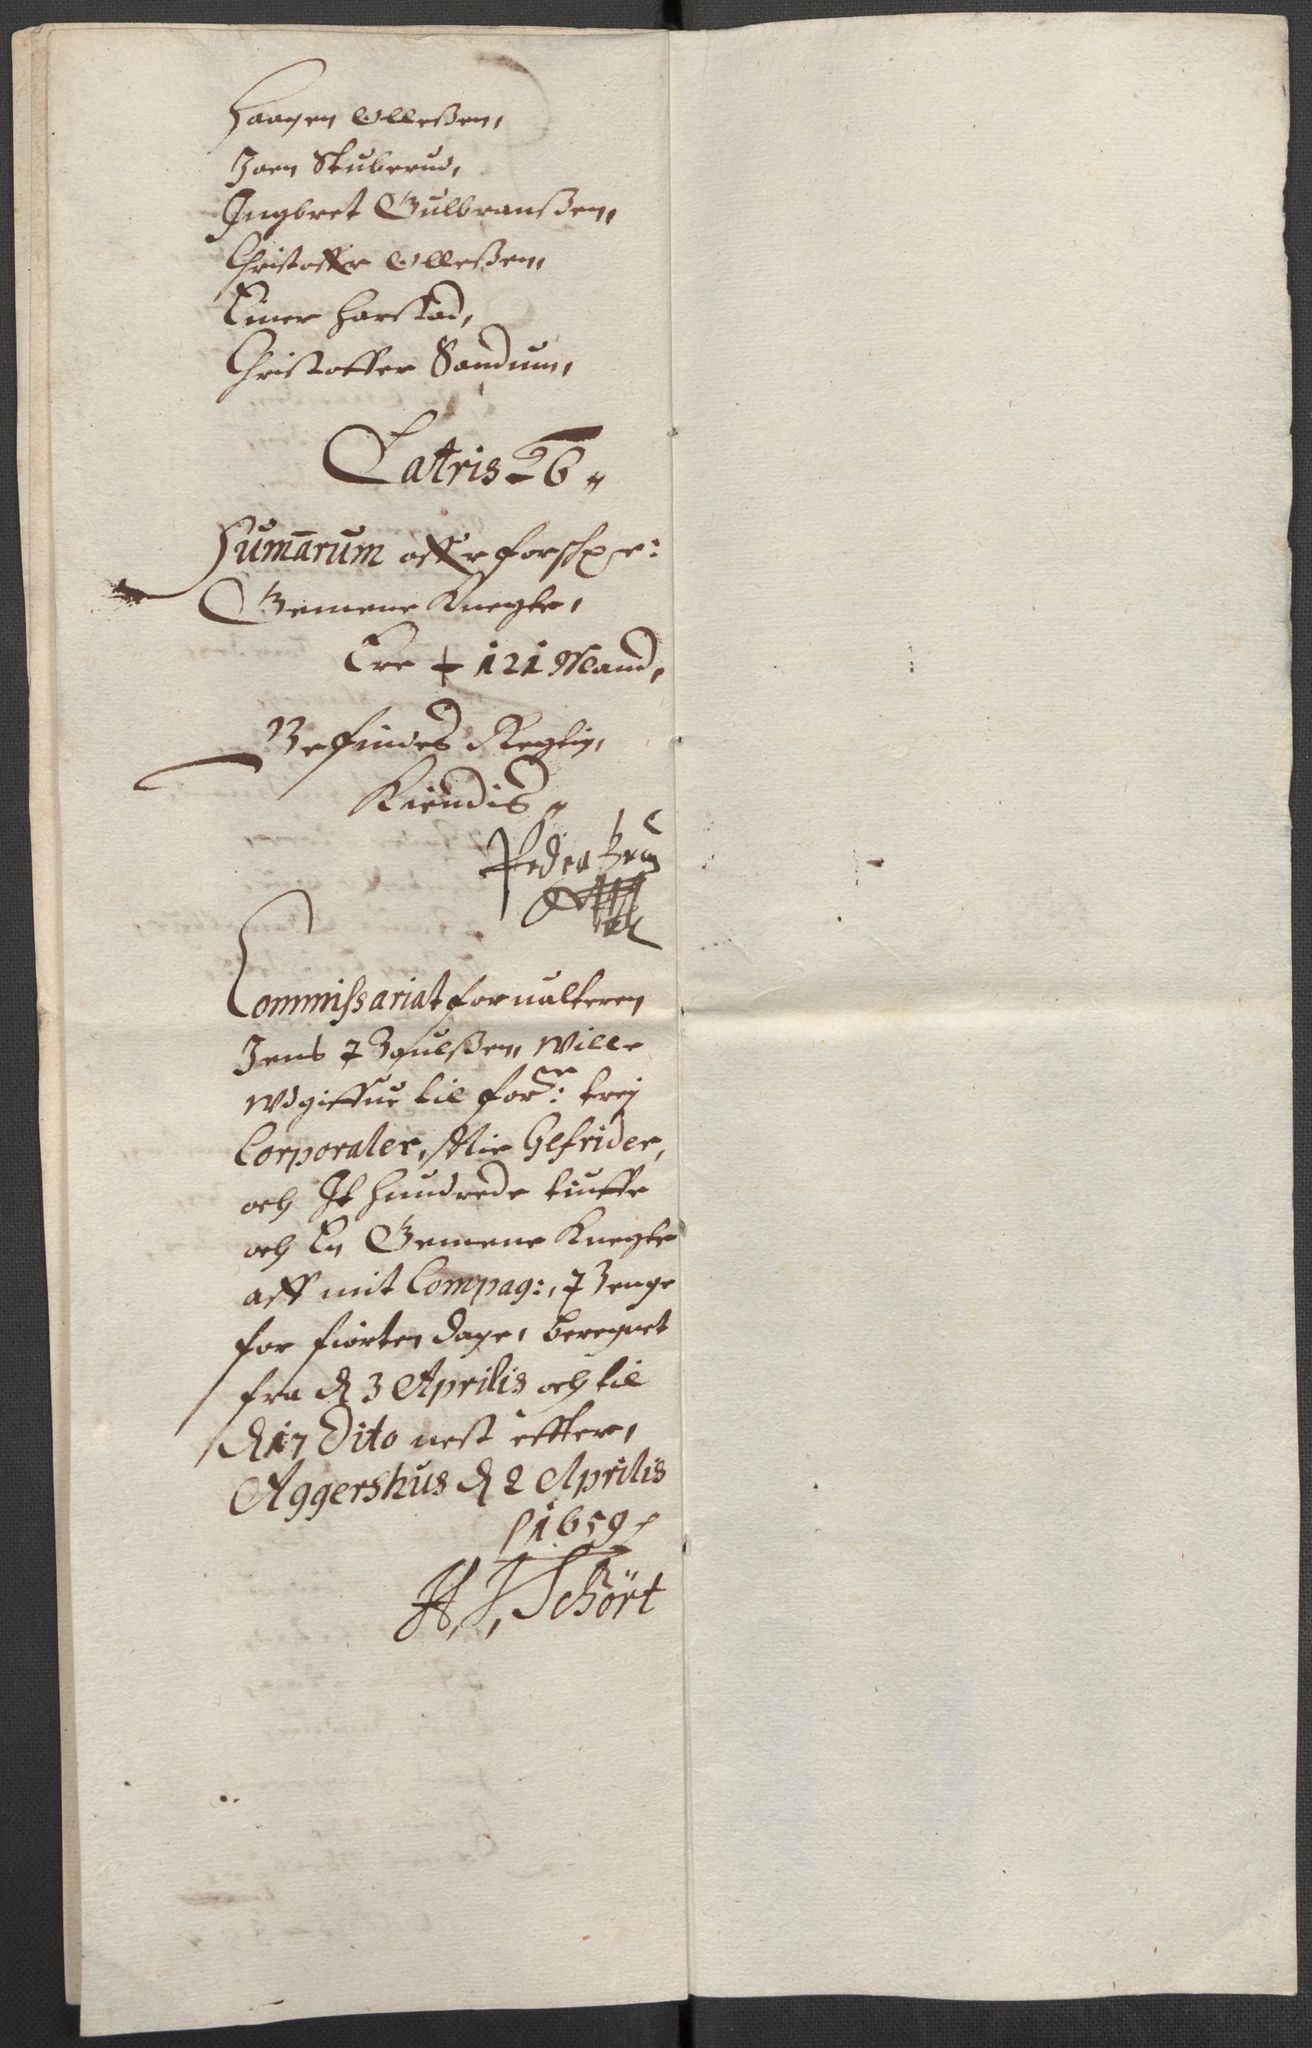 Haagen Olleßen,
Joen Skuberud,
Ingbret Gulbranßen,
Christoffer Olleßen,
Einer Harstad,
Christoffer Sandum,
Latris 26
Sumarum offr:
Gemene Knegte,
Ere 121 Mand,
Befindes Regtig,
Kiendis
Peder Brun
Commissariat forualteren
Jens Poulßen, wille
wdgiffue til for: trej
Corporaler, Nie Gefrider,
och It hundrede tiuffe
och En Gemene Knegte
aff mit Compag:, Penge
for fiorten dage, beregnet
fra d 3 Aprilis och til
d 17 Dito nest effter,
Aggershus d 2 Aprilis
1659
H, J, Schört